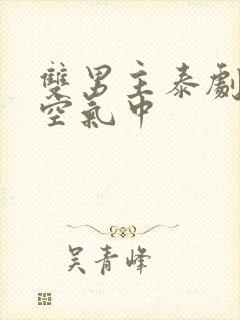 雙男主泰劇
空氣中
吳青峰